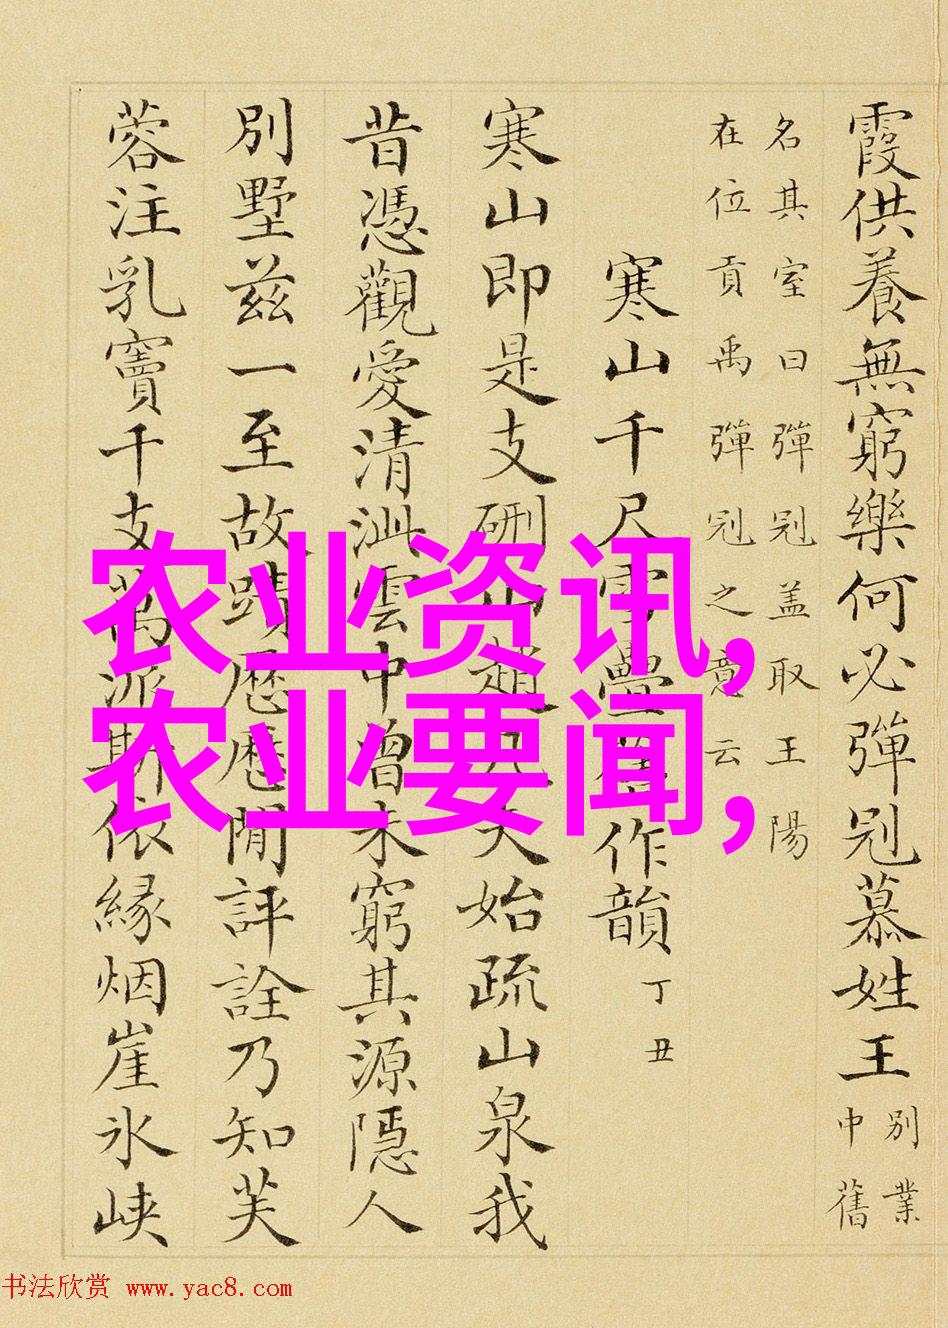 霞供養無窮樂何必彈冠慕姓王別業
中舊
名其室曰彈冠蓋取王陽
在位貢禹彈冠之意云
寒山千尺雪疊舊作韻丁丑
寒山即是支硎山趙凡夫始疏山泉我
昔憑觀愛清泚雲中曾未窮其源隱人
別墅茲一至故蹟歷歷閒評詮乃知芙
蓉注乳竇千支萬派斯依緣烟崖氷峽
农业资讯,
农业要闻,
书法欣赏 www.yac8.com